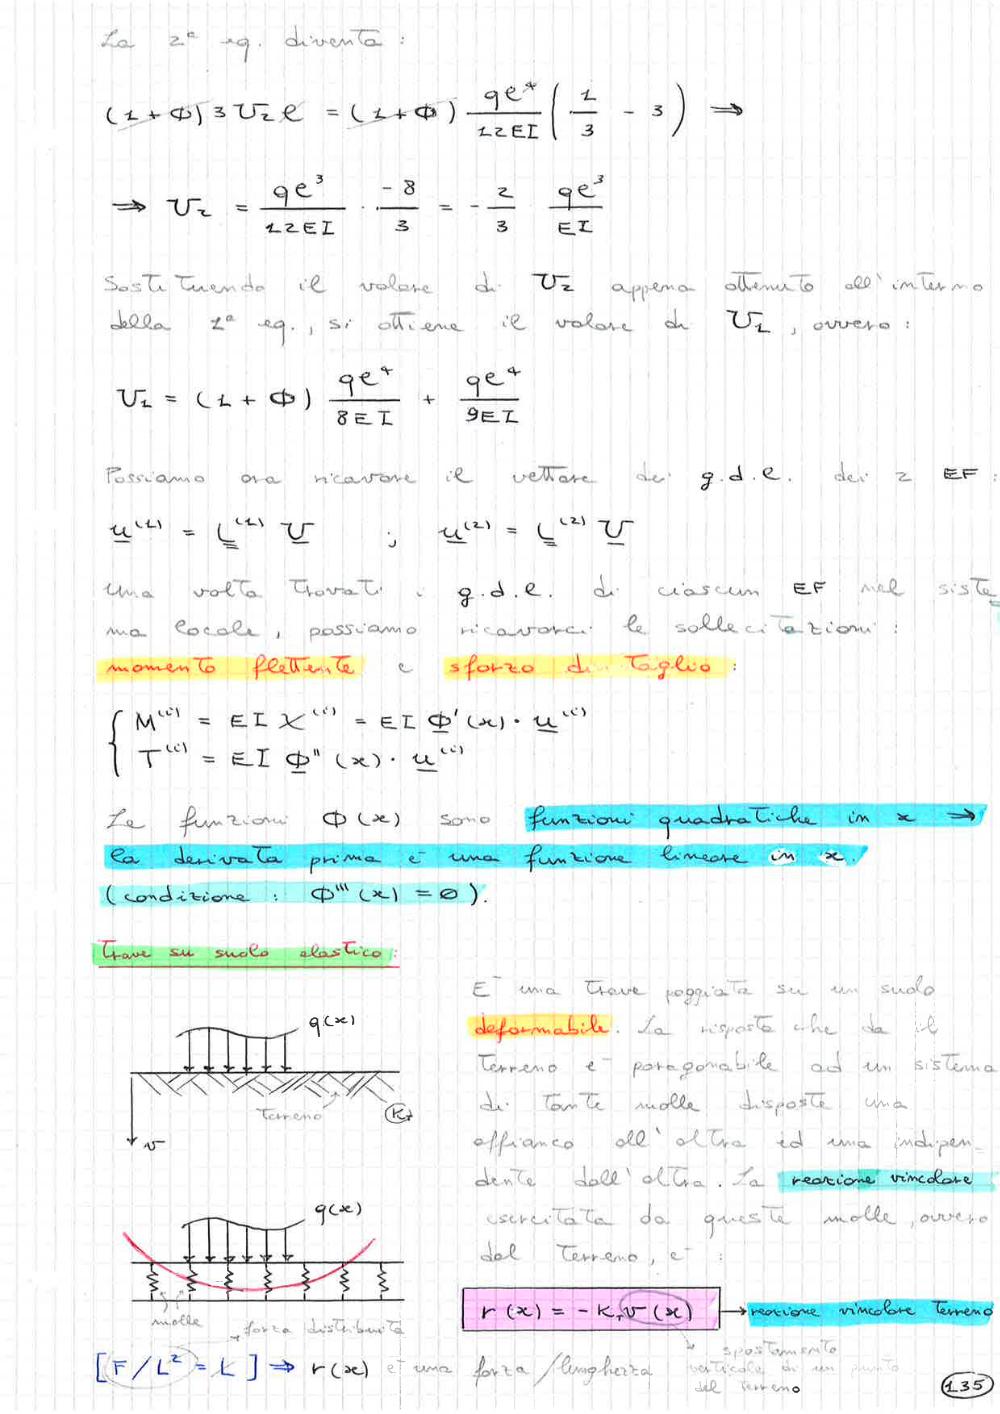 La 2ª eq. diventa :
(1+ϕ) 3 U₂ l = (1+ϕ) ql⁴/12EI (1/3 - 3) ⇒
⇒ U₂ = ql³/12EI · -8/3 = - 2/3 ql³/EI
Sostituendo il valore di U₂ appena ottenuto all'interno
della 1ª eq., si ottiene il valore di U₁, ovvero :
U₁ = (1+ϕ) ql⁴/8EI + ql⁴/9EI
Possiamo ora ricavare il vettore dei g.d.l. dei 2 EF :
u⁽¹⁾ = L⁽¹⁾ U ; u⁽²⁾ = L⁽²⁾ U
Una volta trovati i g.d.l. di ciascun EF nel siste
ma locale, possiamo ricavarci le sollecitazioni :
momento flettente e sforzo di taglio :
M⁽ⁱ⁾ = EI χ⁽ⁱ⁾ = EI ϕ'(x) · u⁽ⁱ⁾
T⁽ⁱ⁾ = EI ϕ''(x) · u⁽ⁱ⁾
Le funzioni ϕ(x) sono funzioni quadratiche in x →
la derivata prima è una funzione lineare in x.
(condizione : ϕ'''(x) = 0).
Trave su suolo elastico:
q(x)
Terreno
Kₜ
v
È una trave poggiata su un suolo
deformabile. La risposta che da il
terreno è paragonabile ad un sistema
di tante molle disposte una
affianco all'altra ed una indipen-
dente dall'altra. La reazione vincolare
esercitata da queste molle, ovvero
dal terreno, è :
q(x)
molle
forza distribuita
r(x) = -Kₜ v(x) → reazione vincolare terreno
spostamento
verticale di un punto
del terreno
[F/L² = K] ⇒ r(x) è una forza/lunghezza
135